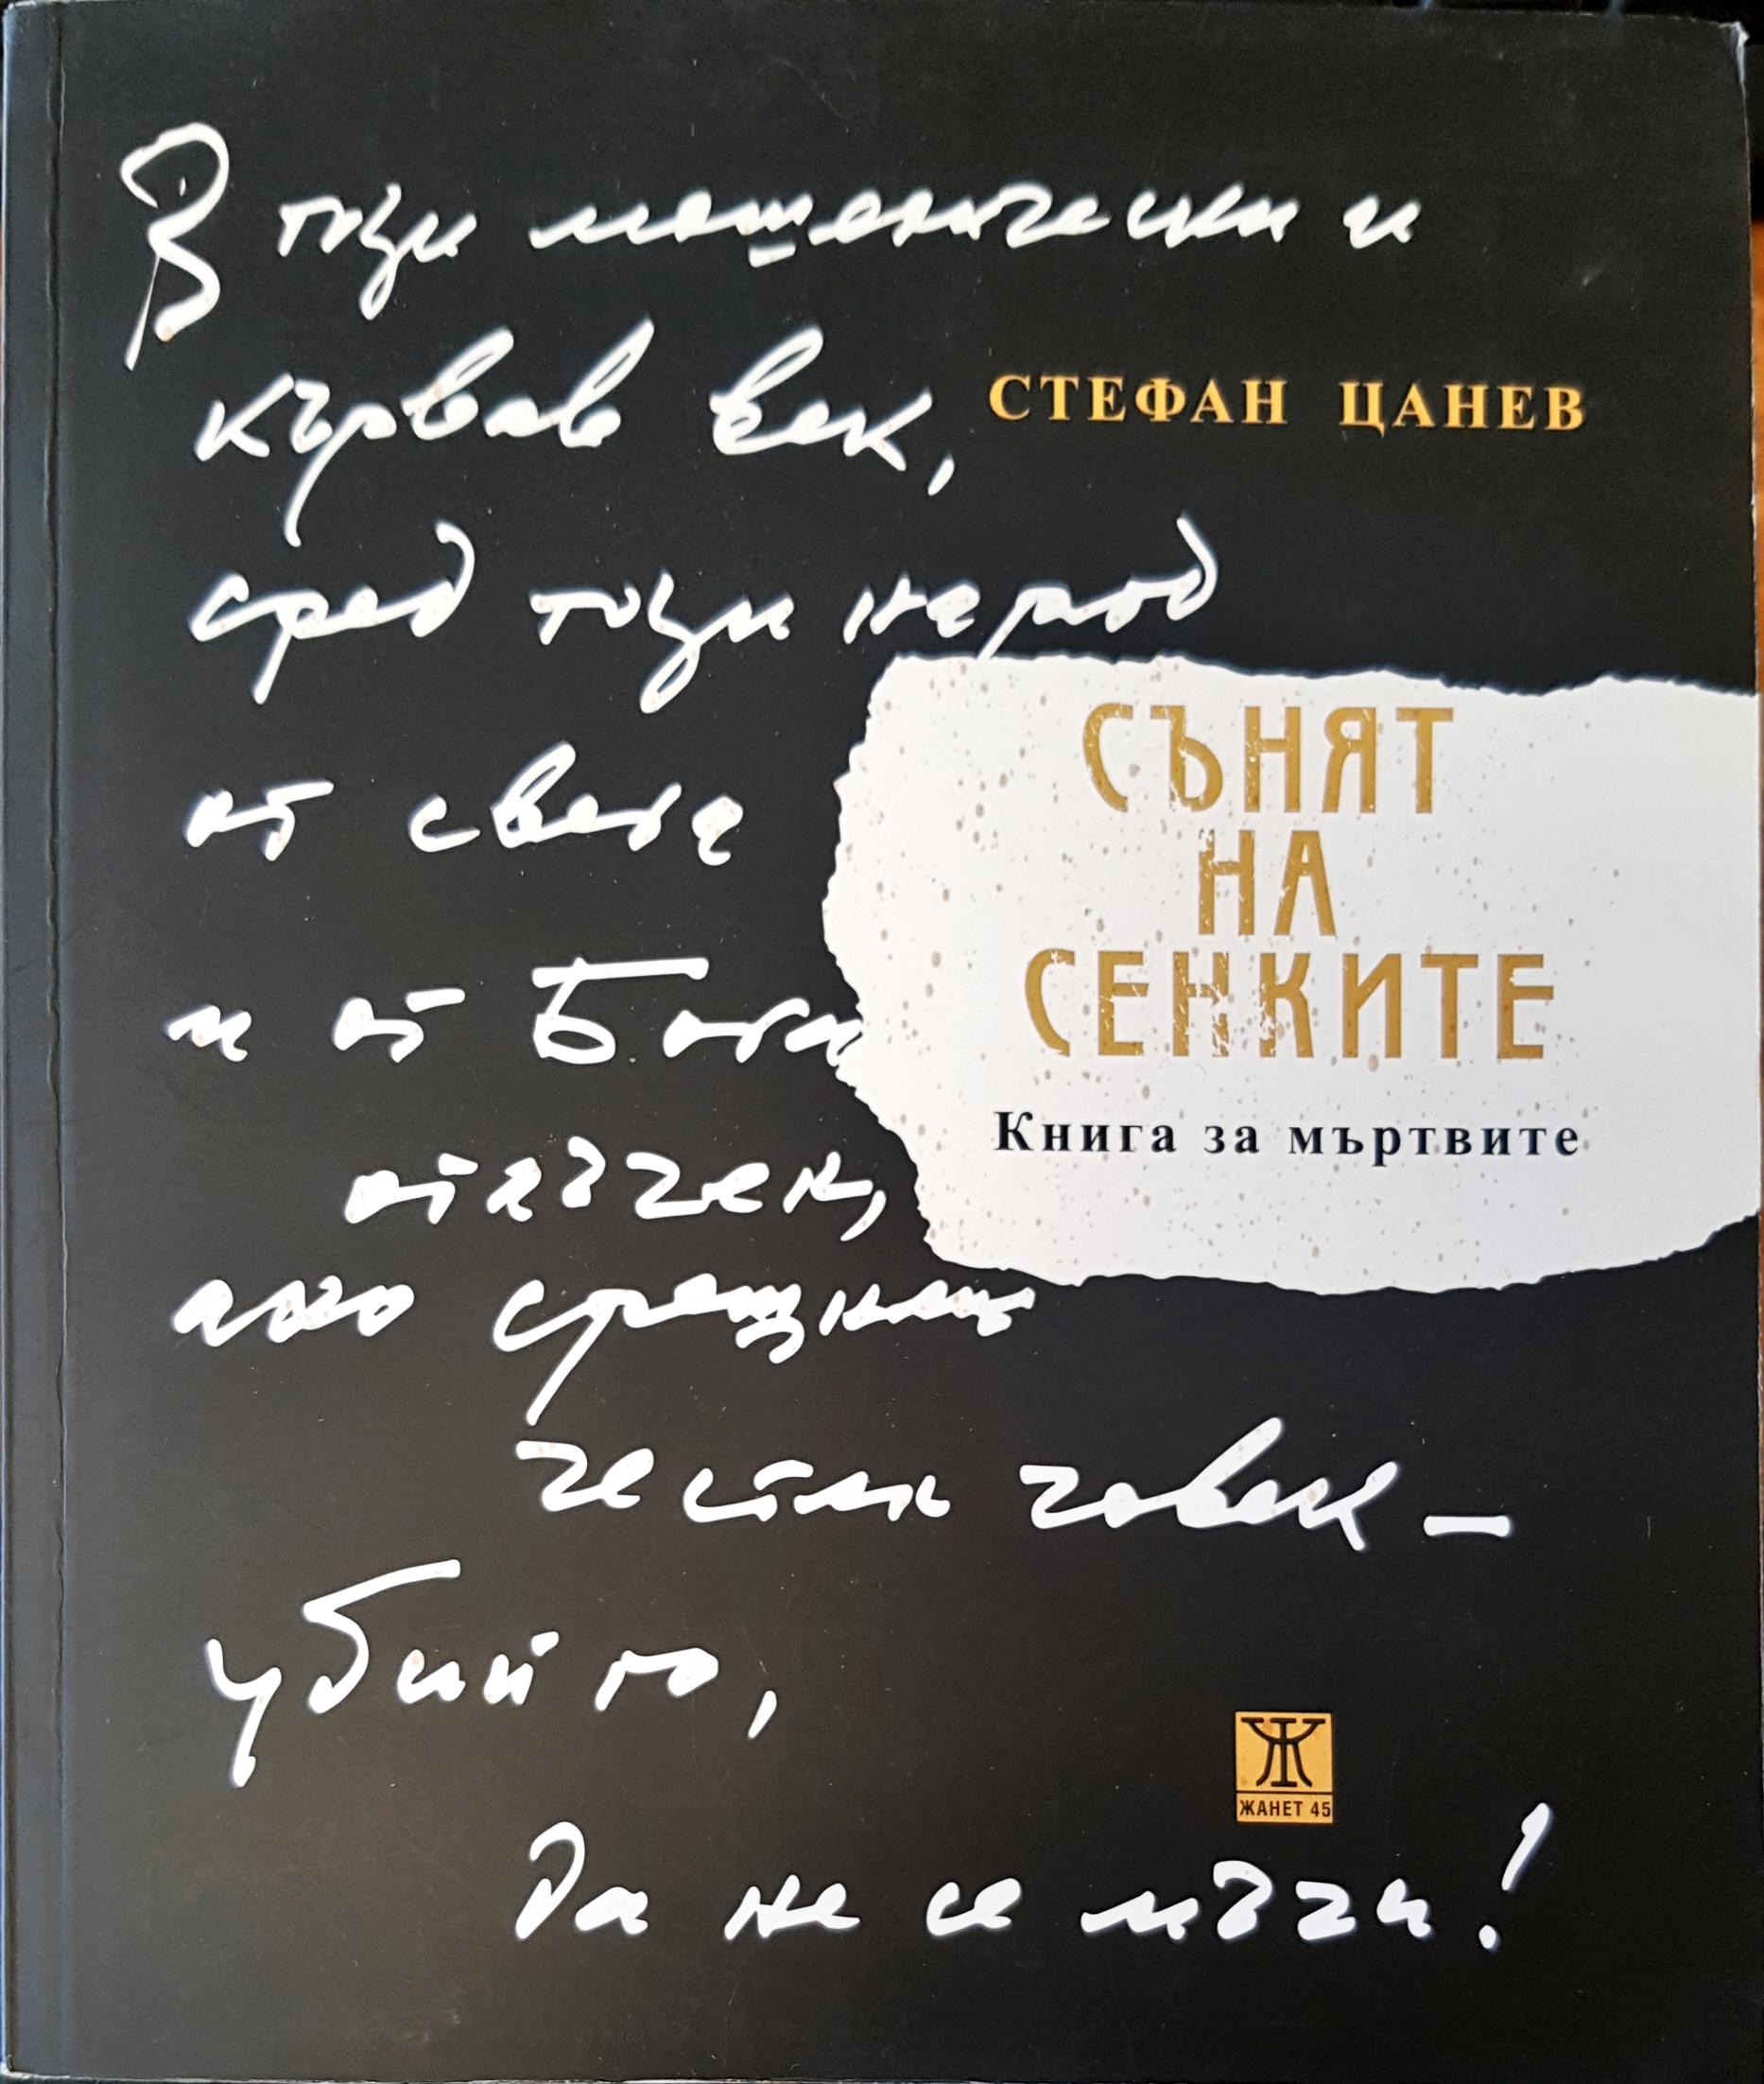 В този мошенически и
кървав век,
СТЕФАН ЦАНЕВ
сред този народ
от света
и от Бога
отлъчен,
ако срещнеш
честен човек –
убий го,
да не се мъчи!
СЪНЯТ
НА
СЕНКИТЕ
Книга за мъртвите
Ж
ЖАНЕТ 45